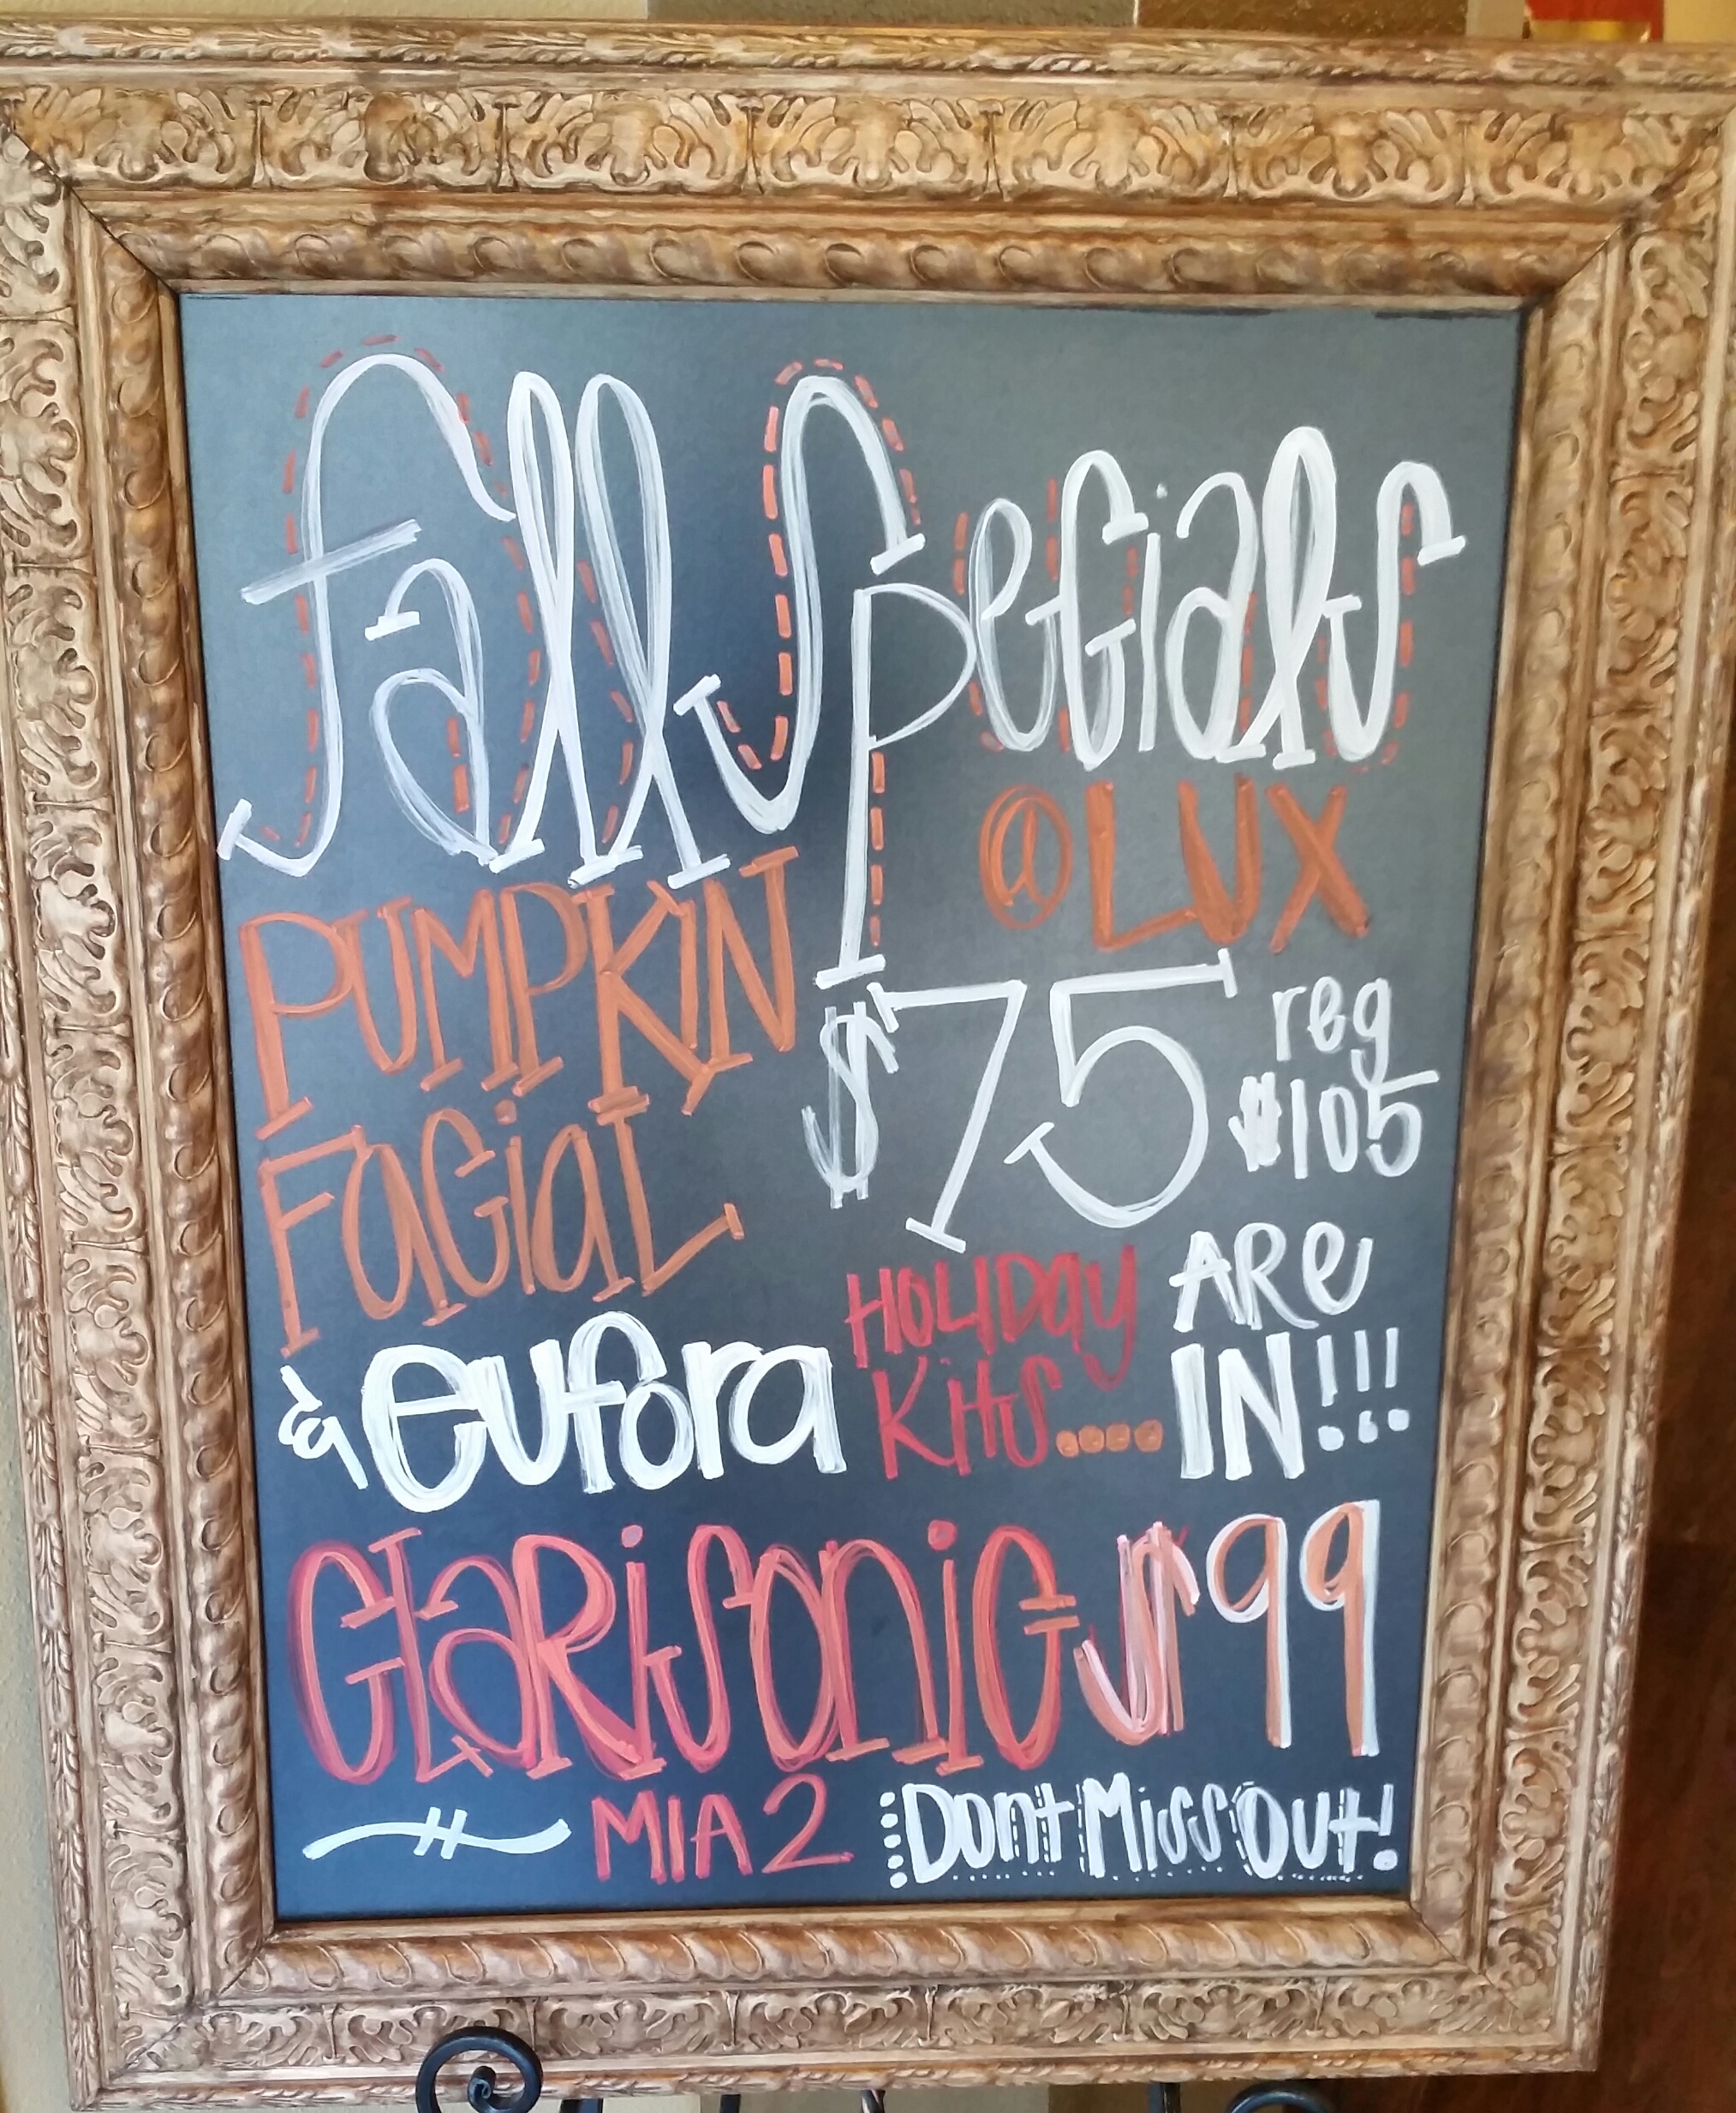 Fall Specials
@ LUX
PUMPKIN
FaCiaL
$75 reg
$105
& eufora HOLIDay KitS.... ARe IN!!!
CLaRiSoniC $99
MIA 2 Dont Miss Out!